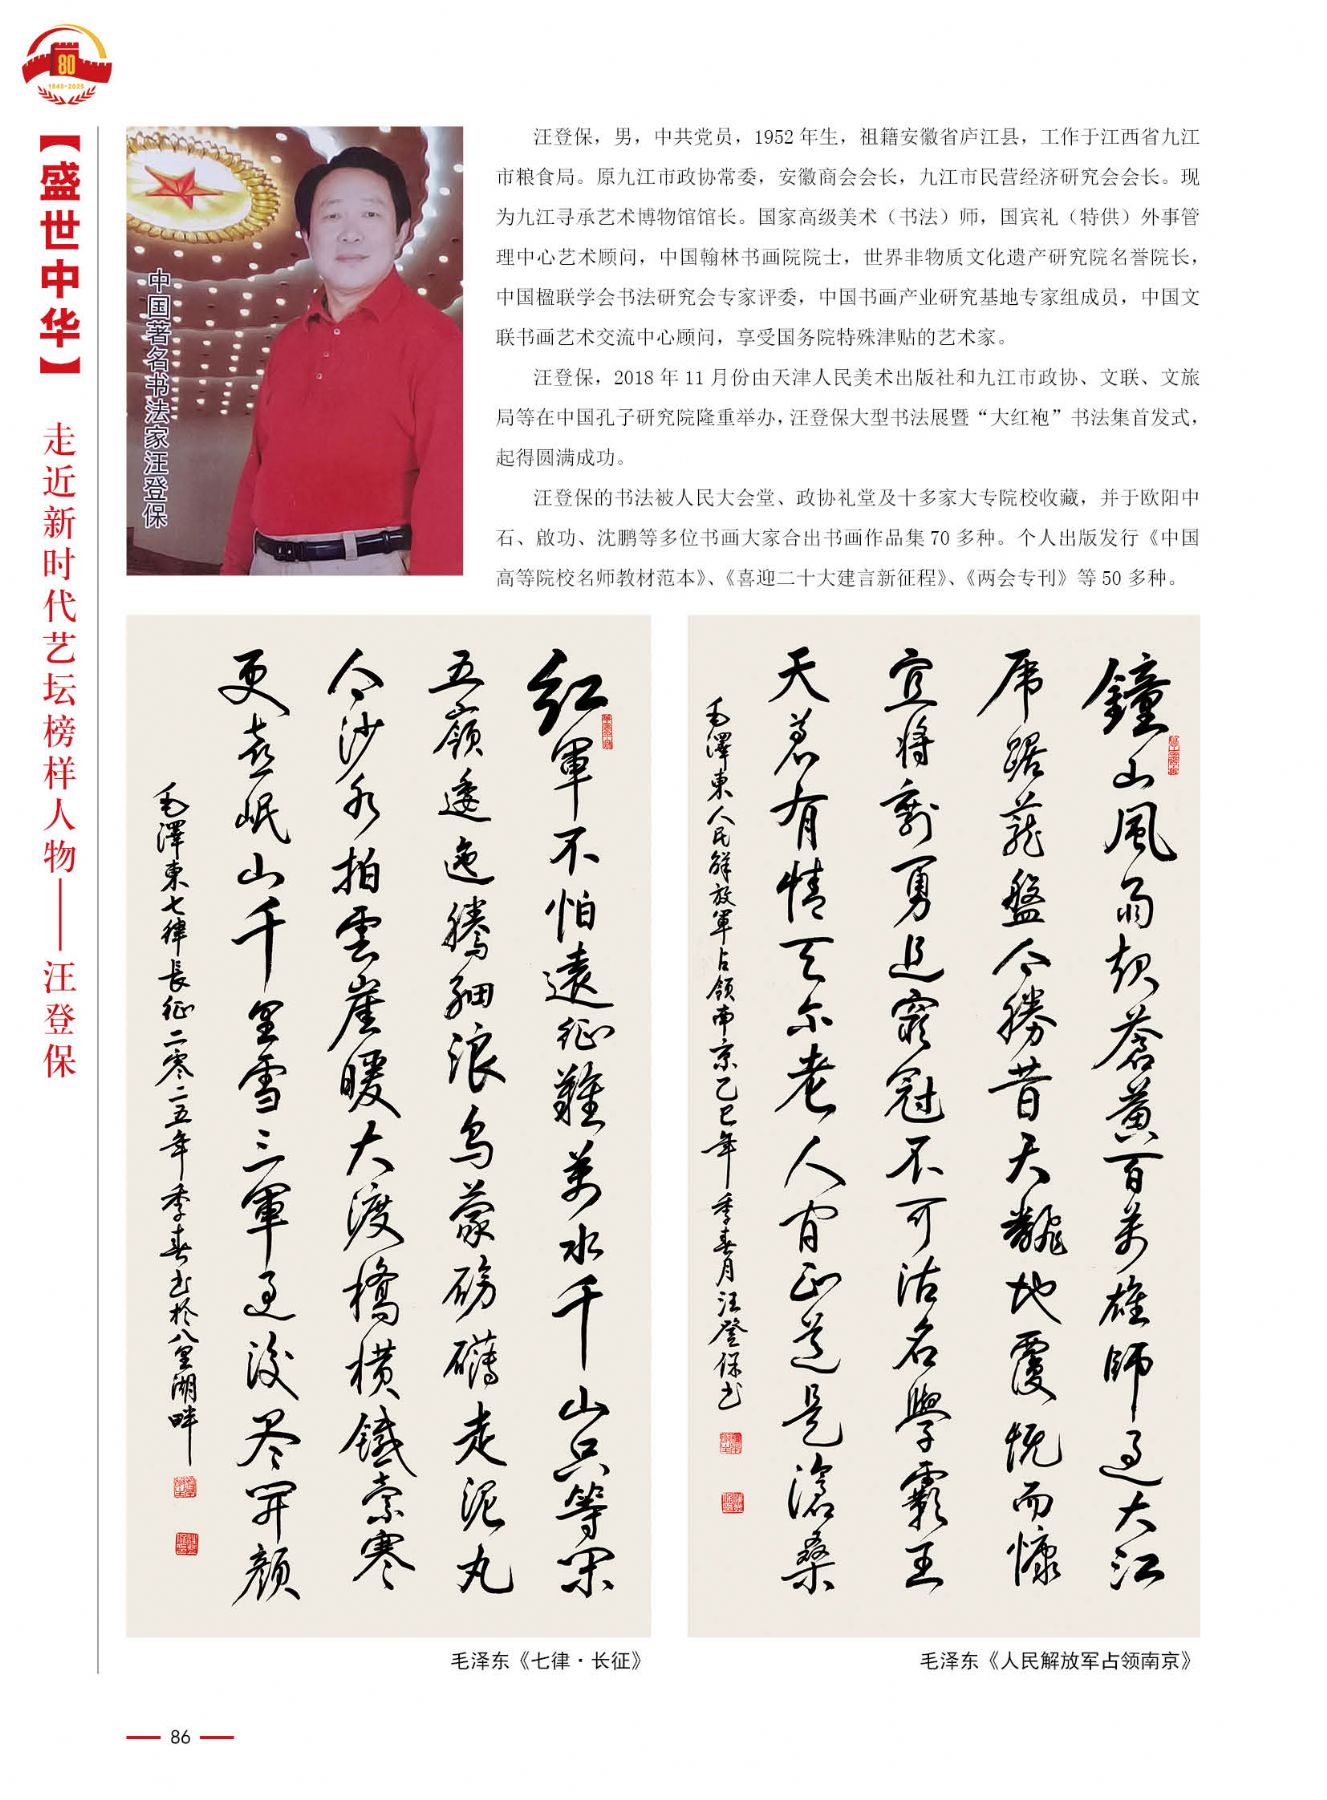 80
1945-2025
【盛世中华】
走近新时代艺坛榜样人物——汪登保
中国著名书法家汪登保
汪登保，男，中共党员，1952 年生，祖籍安徽省庐江县，工作于江西省九江
市粮食局。原九江市政协常委，安徽商会会长，九江市民营经济研究会会长。现
为九江寻承艺术博物馆馆长。国家高级美术（书法）师，国宾礼（特供）外事管
理中心艺术顾问，中国翰林书画院院士，世界非物质文化遗产研究院名誉院长，
中国楹联学会书法研究会专家评委，中国书画产业研究基地专家组成员，中国文
联书画艺术交流中心顾问，享受国务院特殊津贴的艺术家。
汪登保，2018 年 11 月份由天津人民美术出版社和九江市政协、文联、文旅
局等在中国孔子研究院隆重举办，汪登保大型书法展暨“大红袍”书法集首发式，
起得圆满成功。
汪登保的书法被人民大会堂、政协礼堂及十多家大专院校收藏，并于欧阳中
石、啟功、沈鹏等多位书画大家合出书画作品集 70 多种。个人出版发行《中国
高等院校名师教材范本》、《喜迎二十大建言新征程》、《两会专刊》等 50 多种。
红軍不怕遠征難萬水千山只等閑
五嶺逶迤騰細浪烏蒙磅礴走泥丸
金沙水拍雲崖暖大渡橋横鐵索寒
更喜岷山千里雪三軍過後盡開顔
毛澤東七律長征二零二五年季春書於八里湖畔
鐘山風雨起蒼黄百萬雄師過大江
虎踞龍盤今勝昔天翻地覆慨而慷
宜將剩勇追窮寇不可沽名學霸王
天若有情天亦老人间正道是滄桑
毛澤東人民解放軍占領南京乙巳年季春月汪登保書
毛泽东《七律·长征》
毛泽东《人民解放军占领南京》
86